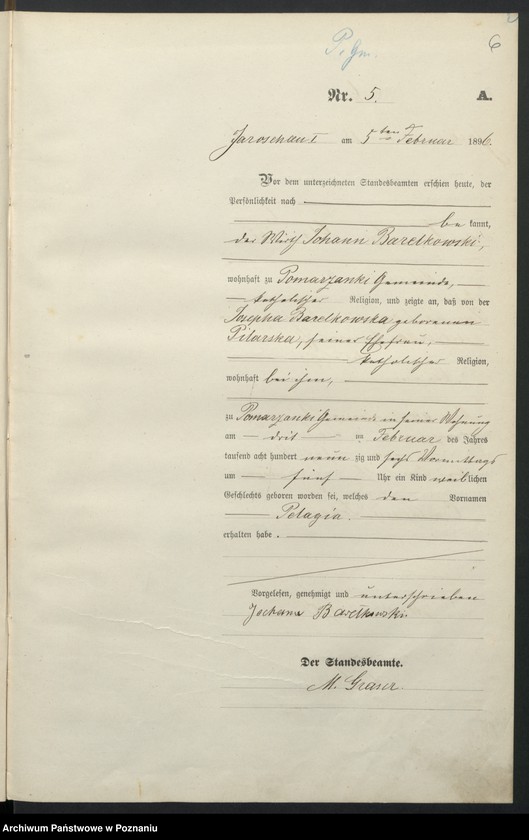 6
P. Gm.
Nr. 5. A.
Jaroschau I am 5ten Februar 1896.
Vor dem unterzeichneten Standesbeamten erschien heute, der
Persönlichkeit nach
bekannt,
der Wirth Johann Barelkowski,
wohnhaft zu Pomarzanki Gemeinde,
katholischer Religion, und zeigte an, daß von der
Josepha Barelkowska geborenen
Pilarska, seiner Ehefrau,
katholischer Religion,
wohnhaft bei ihm,
zu Pomarzanki Gemeinde in seiner Wohnung
am drit en Februar des Jahres
tausend acht hundert neun zig und sechs Vormittags
um fünf Uhr ein Kind weiblichen
Geschlechts geboren worden sei, welches den Vornamen
Pelagia.
erhalten habe.
Vorgelesen, genehmigt und unterschrieben
Barelkowski
Der Standesbeamte.
M. Graser
Archiwum Państwowe w Poznaniu